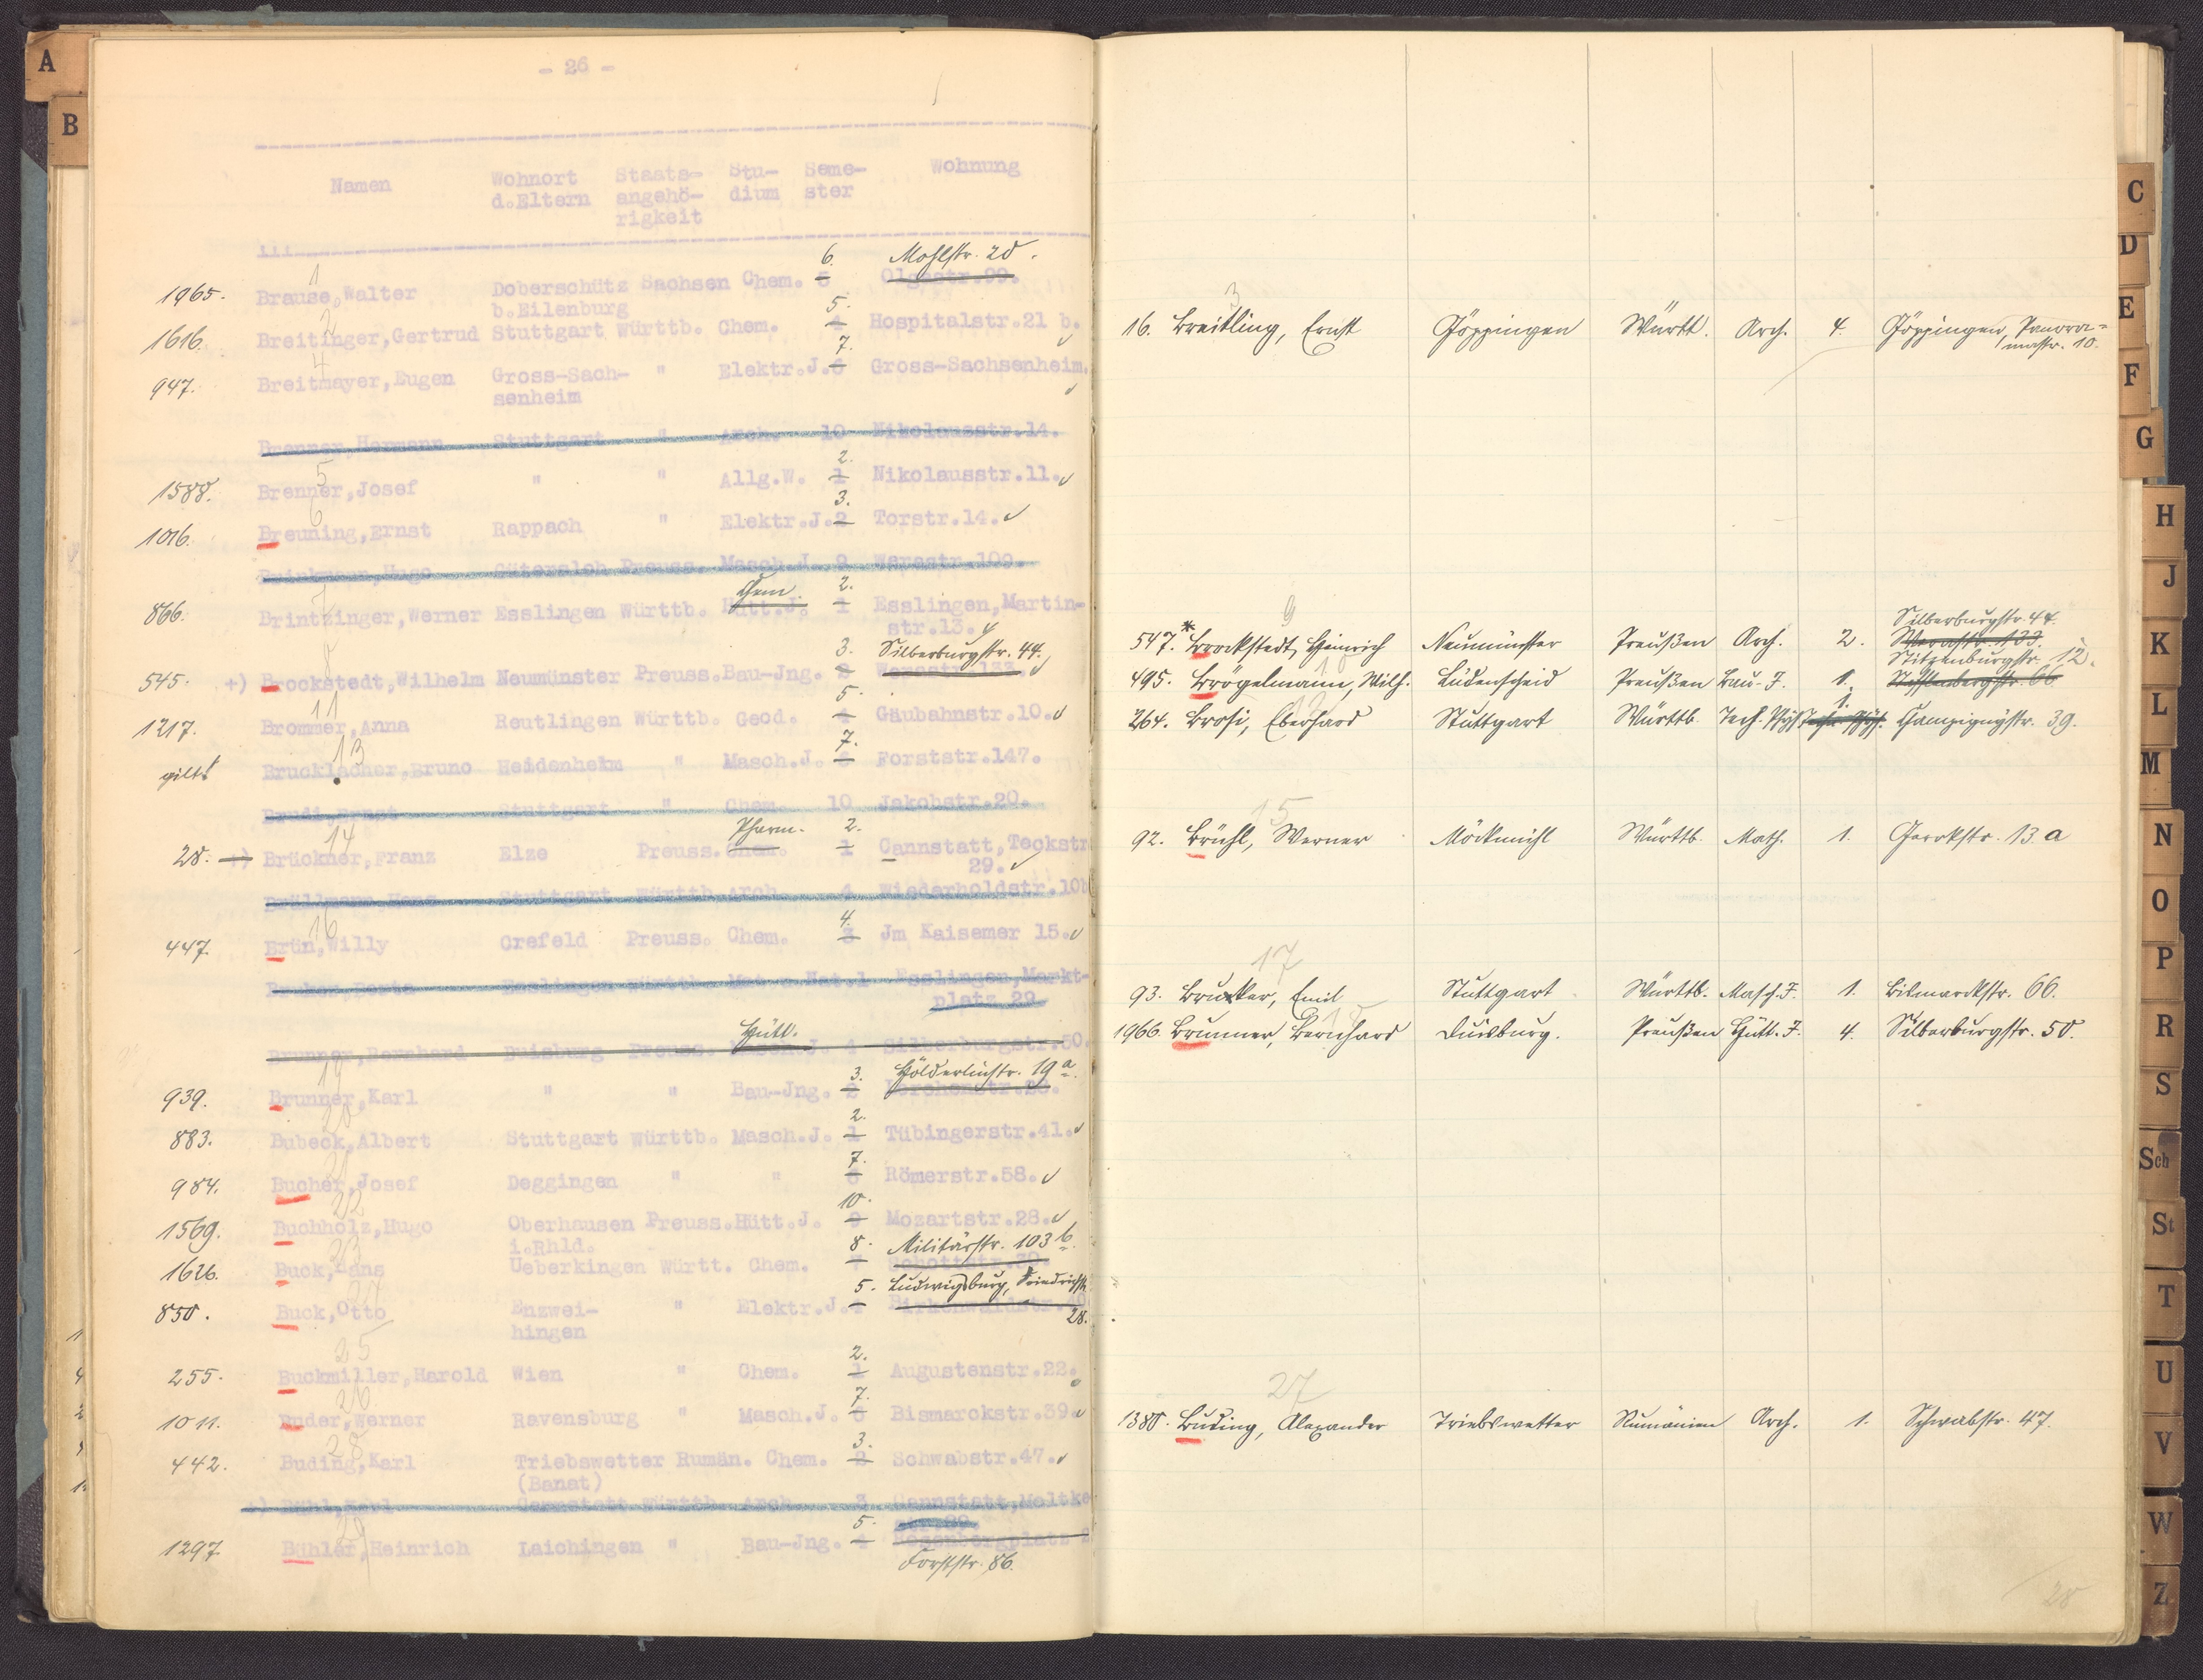 A
B
- 26 -
Namen Wohnort d.Eltern Staats-angehö-rigkeit Stu-dium Seme-ster Wohnung
1 6. Mohlstr. 28.
1965. Brause,Walter Doberschütz Sachsen Chem. 5 Olgastr.99.
b.Eilenburg
2 5.
1616. Breitinger,Gertrud Stuttgart Württb. Chem. 4 Hospitalstr.21 b.
4 7.
947. Breitmayer,Eugen Gross-Sach- " Elektr.J. 6 Gross-Sachsenheim.
senheim
Brenner,Hermann Stuttgart " Arch. 10 Nikolausstr.14.
5 2.
1588. Brenner,Josef " " Allg.W. 1 Nikolausstr.11.
6 3.
1016. Breuning,Ernst Rappach " Elektr.J. 2 Torstr.14.
Brinkmann,Hugo Gütersloh Preuss. Masch.J.
7 Chem. 2.
866. Brintzinger,Werner Esslingen Württb. Hütt.J. 1 Esslingen,Martin-
str.13.
8 3. Silberburgstr. 44.
545. +) Brockstedt,Wilhelm Neumünster Preuss. Bau-Jng. 2 Werastr.133
11 5.
1217. Brommer,Anna Reutlingen Württb. Geod. 4 Gäubahnstr.10.
13 7.
gilt! Brucklacher,Bruno Heidenheim " Masch.J. 6 Forststr.147.
Stuttgart " Chem. 10 Jakobstr.20.
14 Pharm. 2.
28. +) Brückner,Franz Elze Preuss. Chem. 1 Cannstatt,Teckstr
29.
Stuttgart Württb. Arch. 4 Wiederholdstr.10b
16 4.
447. Brün,Willy Crefeld Preuss. Chem. 3 Jm Kaisemer 15.
Esslingen Württb. Mat.u.Nat. 1 Esslingen,Markt-
platz 29
Hütt.
Brunner,Bernhard Duisburg Preuss. Masch.J. 4 Silberburgstr.50.
19 3. Hölderlinstr. 19 a.
939. Brunner,Karl " " Bau-Jng. 2
20 2.
883. Bubeck,Albert Stuttgart Württb. Masch.J. 1 Tübingerstr.41.
21 7.
984. Bucher,Josef Deggingen " " 6 Römerstr.58.
22 10.
1569. Buchholz,Hugo Oberhausen Preuss. Hütt.J. 9 Mozartstr.28.
i.Rhld.
23 8. Militärstr. 103 b.
1626. Buck,Hans Ueberkingen Württ. Chem. 7 Schottstr.30.
24 5. Ludwigsburg, Friedrichstr.
850. Buck,Otto Enzwei- " Elektr.J. 4 Birkenwaldstr.
hingen 28.
25 2.
255. Buckmiller,Harold Wien " Chem. 1 Augustenstr.22.
26 7.
1011. Buder,Werner Ravensburg " Masch.J. 6 Bismarckstr.39.
28 3.
442. Buding,Karl Triebswetter Rumän. Chem. 2 Schwabstr.47.
(Banat)
Bühl,Karl Cannstatt Württb. Arch. 3 Cannstatt,Moltke
29 5.
1297. Bühler,Heinrich Laichingen " Bau-Jng. 4
Forststr. 86.
3
16. Breitling, Ernst Göppingen Württ. Arch. 4. Göppingen, Panora-
mastr. 10.
9 Silberburgstr. 44.
547.* Brockstedt, Heinrich Neumünster Preußen Arch. 2. Werastr. 133.
10 Stitzenburgstr. 12.
495. Brögelmann, Wilh. Lüdenscheid Preußen Bau-J. 1.
12 1.
264. Brosi, Eberhard Stuttgart Württb. Tech. Phys. Champignystr. 39.
15
92. Brühl, Werner Möckmühl Württb. Math. 1. Gerokstr. 13 a
17
93. Emil Stuttgart Württb. Masch.J. 1. Bismarckstr. 66.
18
1966. Brunner, Bernhard Duisburg. Preußen Hütt.J. 4. Silberburgstr. 50.
27
1380. Buding, Alexander Triebswetter Rumänien Arch. 1. Schwabstr. 47.
28
C
D
E
F
G
H
J
K
L
M
N
O
P
R
S
Sch
St
T
U
V
W
Z